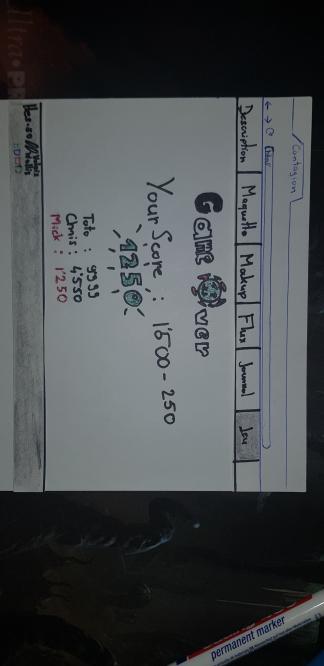 Contagion
html/
Description Maquette Makup Flux Journal Jeu
Game Over
Your Score : 1'500 - 250
1250
Toto : 9999
Chris : 4'550
Mick : 1'250
Hes-so Valais
Wallis
permanent marker
Ultra•PR